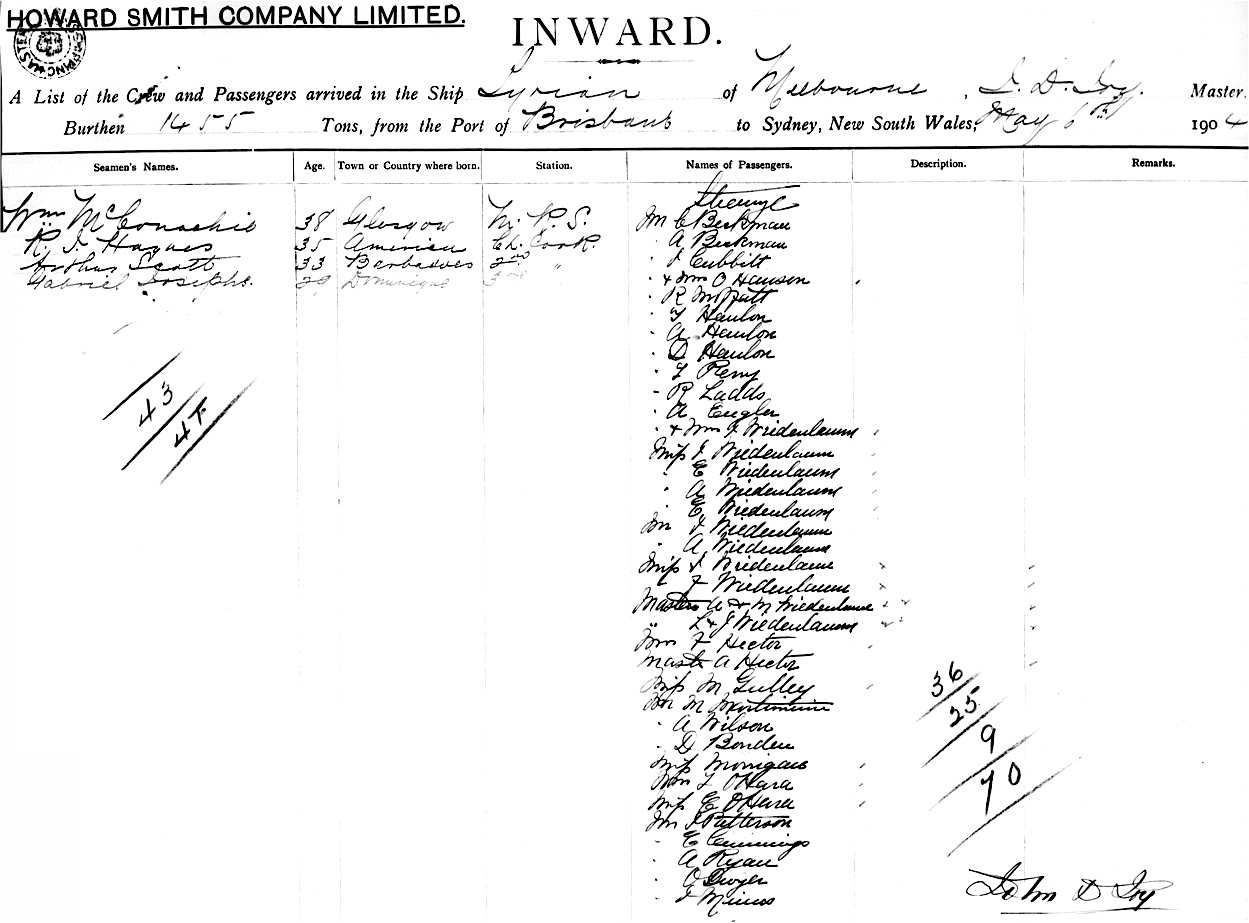 HOWARD SMITH COMPANY LIMITED.
INWARD.
A List of the Crew and Passengers arrived in the Ship Syrian of Melbourne, J. D. Joy. Master.
Burthen 1455 Tons, from the Port of Brisbane to Sydney, New South Wales, May 6th 1904
Seamen's Names. Age. Town or Country where born. Station. Names of Passengers. Description. Remarks.
Steerage
Wm McConachie 38 Glasgow
R. J. Haynes 35 American Ch. Cook.
Arthur Scott 33 Barbadoes 2nd
Gabriel Josephs. 29 3rd "
43
47
Mr C Beckman
A Beckman
J Cubbitt
& Mrs O Hanson
R Moffatt
T Hanlon
A Hanlon
D Hanlon
T Perry
R Ladds
A Engler
& Mrs F Wiedenlaum
Miss J Wiedenlaum
E Wiedenlaum
A Wiedenlaum
E Wiedenlaum
Mr J Wiedenlaum
A Wiedenlaum
Miss J Wiedenlaum
F Wiedenlaum
Masters A & M Wiedenlaum
" L & J Wiedenlaum
Mrs F Hector
Mast A Hector
Miss M Gulley
Mr M
A Wilson
D Bonden
Miss
Mrs L O'Hara
Miss E O'Hara
Mr J Patterson
E Cummings
A Ryan
O Dwyer
J
36
25
9
70
John D Joy